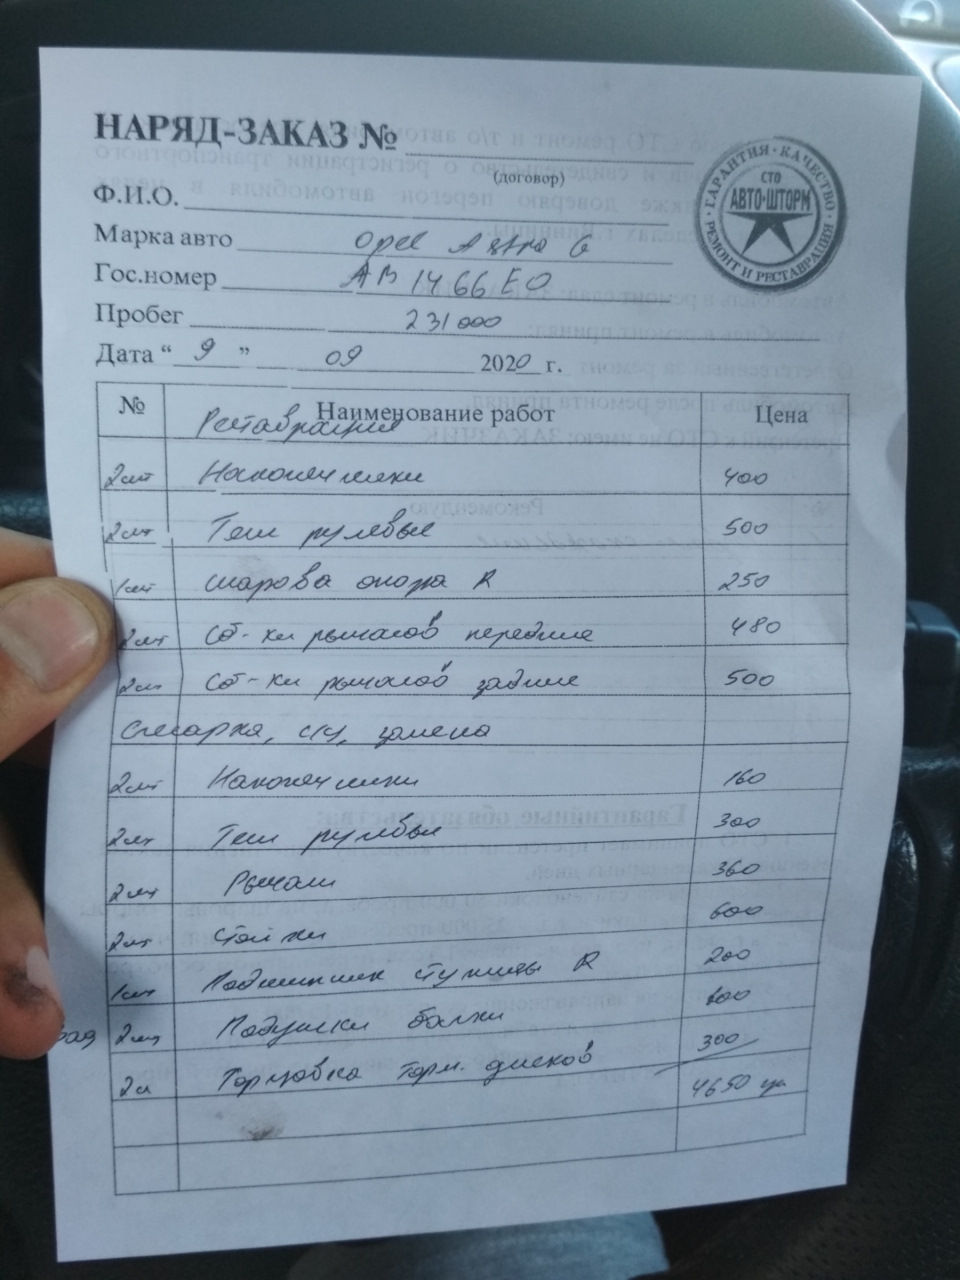 НАРЯД-ЗАКАЗ №
(договор)
ГАРАНТИЯ · КАЧЕСТВО
СТО
АВТО-ШТОРМ
РЕМОНТ И РЕСТАВРАЦИЯ
Ф.И.О.
Марка авто Opel Astra G
Гос.номер АВ 1466 ЕО
Пробег 231000
Дата “ 9 ” 09 2020 г.
№ Наименование работ Цена
Реставрация
2шт Наконечники 400
2шт Тяги рулевые 500
1шт шарова опора R 250
2шт Сб-ки рычагов передние 480
2шт Сб-ки рычагов задние 500
Слесарка, с/у, замена
2шт Наконечники 160
2шт Тяги рулевые 300
2шт Рычаги 360
2шт Стойки 600
1шт Подшипник ступицы R 200
2шт Подушки балки 600
2шт Торцовка торм. дисков 300
4650 грн
Рекомендую
Гарантийные обязательства: